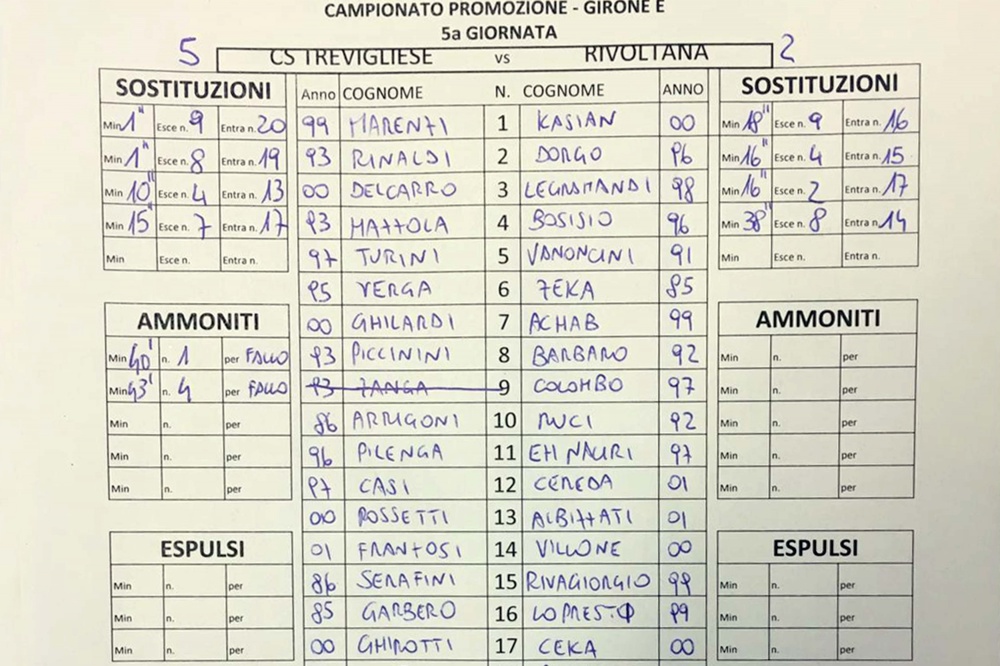 CAMPIONATO PROMOZIONE - GIRONE E
5a GIORNATA
5 CS TREVIGLIESE vs RIVOLTANA 2
SOSTITUZIONI Anno COGNOME N. COGNOME ANNO SOSTITUZIONI
Min 1" Esce n. 9 Entra n. 20 99 MARENZI 1 KASIAN 00 Min 18" Esce n. 9 Entra n. 16
Min 1" Esce n. 8 Entra n. 19 93 RINALDI 2 DORGO 96 Min 16" Esce n. 4 Entra n. 15
Min 10" Esce n. 4 Entra n. 13 00 DELCARRO 3 LEGRAMANDI 98 Min 16" Esce n. 2 Entra n. 17
Min 15" Esce n. 7 Entra n. 17 93 MAZZOLA 4 BOSISIO 96 Min 38" Esce n. 8 Entra n. 14
Min Esce n. Entra n. 97 TURINI 5 VANONCINI 91 Min Esce n. Entra n.
95 VERGA 6 ZEKA 85
AMMONITI 00 GHILARDI 7 ACHAB 99 AMMONITI
Min 40' n. 1 per FALLO 93 PICCININI 8 BARBARO 92 Min n. per
Min 43' n. 4 per FALLO 93 ZANGA 9 COLOMBO 97 Min n. per
Min n. per 86 ARRIGONI 10 NUCI 92 Min n. per
Min n. per 96 PILENGA 11 EH NAURI 97 Min n. per
Min n. per 97 CASI 12 CEREDA 01 Min n. per
00 ROSSETTI 13 ALBIZZATI 01
ESPULSI 01 FRANZOSI 14 VILLONE 00 ESPULSI
Min n. per 86 SERAFINI 15 RIVAGIORGIO 99 Min n. per
Min n. per 85 GARBERO 16 LOPRESTO 99 Min n. per
Min n. per 00 GHIROTTI 17 CEKA 00 Min n. per